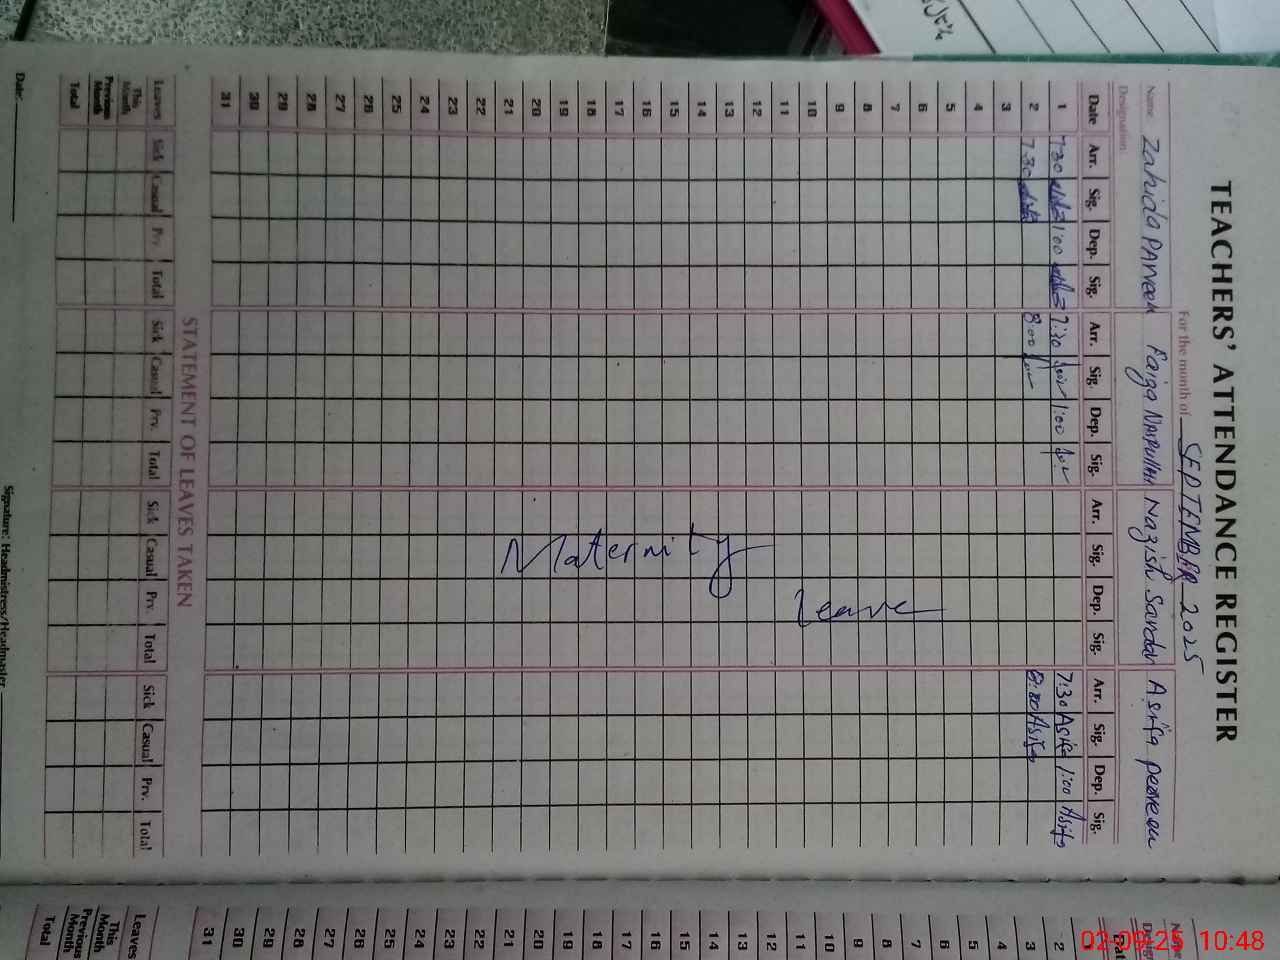 TEACHERS' ATTENDANCE REGISTER
For the month of SEPTEMBER 2025
Name Zahida Parveen Nazish Sardar Asifa
Designation
Date Arr. Sig. Dep. Sig. Arr. Sig. Dep. Sig. Arr. Sig. Dep. Sig. Arr. Sig. Dep. Sig.
1 7:30 1:00 7:30 1:00 7:30 Asifa 1:00 Asifa
2 7:30 8:00 8:00 Asifa
3
4
5
6
7
8
9
10
11
12
13
14
15
16
17
18
19
20
21
22
23
24
25
26
27
28
29
30
31
Maternity
Leave
STATEMENT OF LEAVES TAKEN
Leaves Sick Casual Prv. Total Sick Casual Prv. Total Sick Casual Prv. Total Sick Casual Prv. Total
This Month
Previous Month
Total
Date:
Signature: Headmistress/Headmaster
Name
Date
2
3
4
5
6
7
8
9
10
11
12
13
14
15
16
17
18
19
20
21
22
23
24
25
26
27
28
29
30
31
Leaves
This Month
Previous Month
Total
02-09-25 10:48